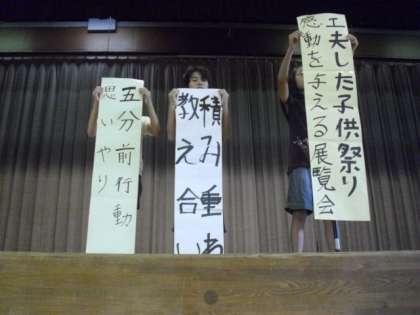 工夫した子供祭り
感動を与える展覧会
積み重ね
教え合い
五分前行動
思いやり